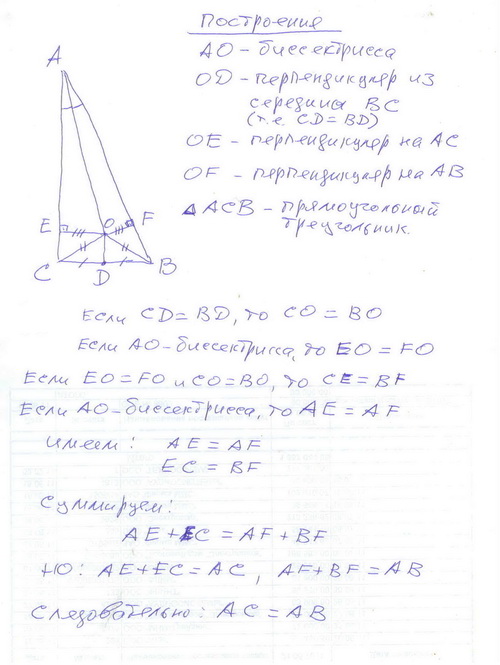 Построения
AO - биссектрисса
OD - перпендикуляр из
середина BC
(т.е. CD = BD)
OE - перпендикуляр на AC
OF - перпендикуляр на AB
△ACB - прямоугольный
треугольник.
A
E
O
F
C
D
B
Если CD = BD, то CO = BO
Если AO - биссектрисса, то EO = FO
Если EO = FO и CO = BO, то CE = BF
Если AO - биссектрисса, то AE = AF
Имеем: AE = AF
EC = BF
Суммируем:
AE + EC = AF + BF
НО: AE + EC = AC, AF + BF = AB
Следовательно: AC = AB